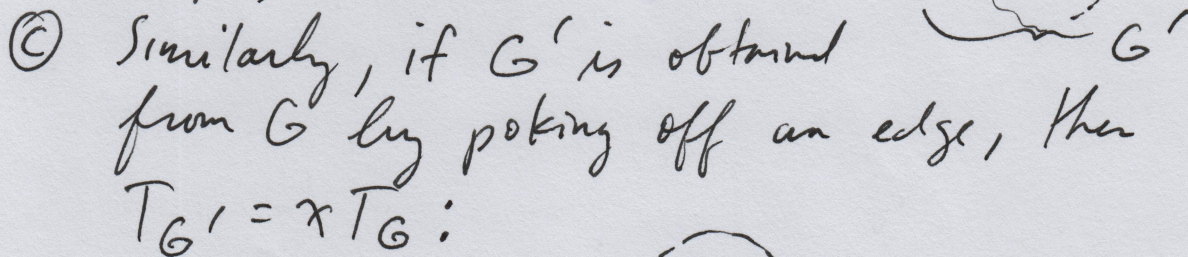 Ⓒ Similarly, if G' is obtained G'
from G by poking off an edge, then
T_G' = x T_G :